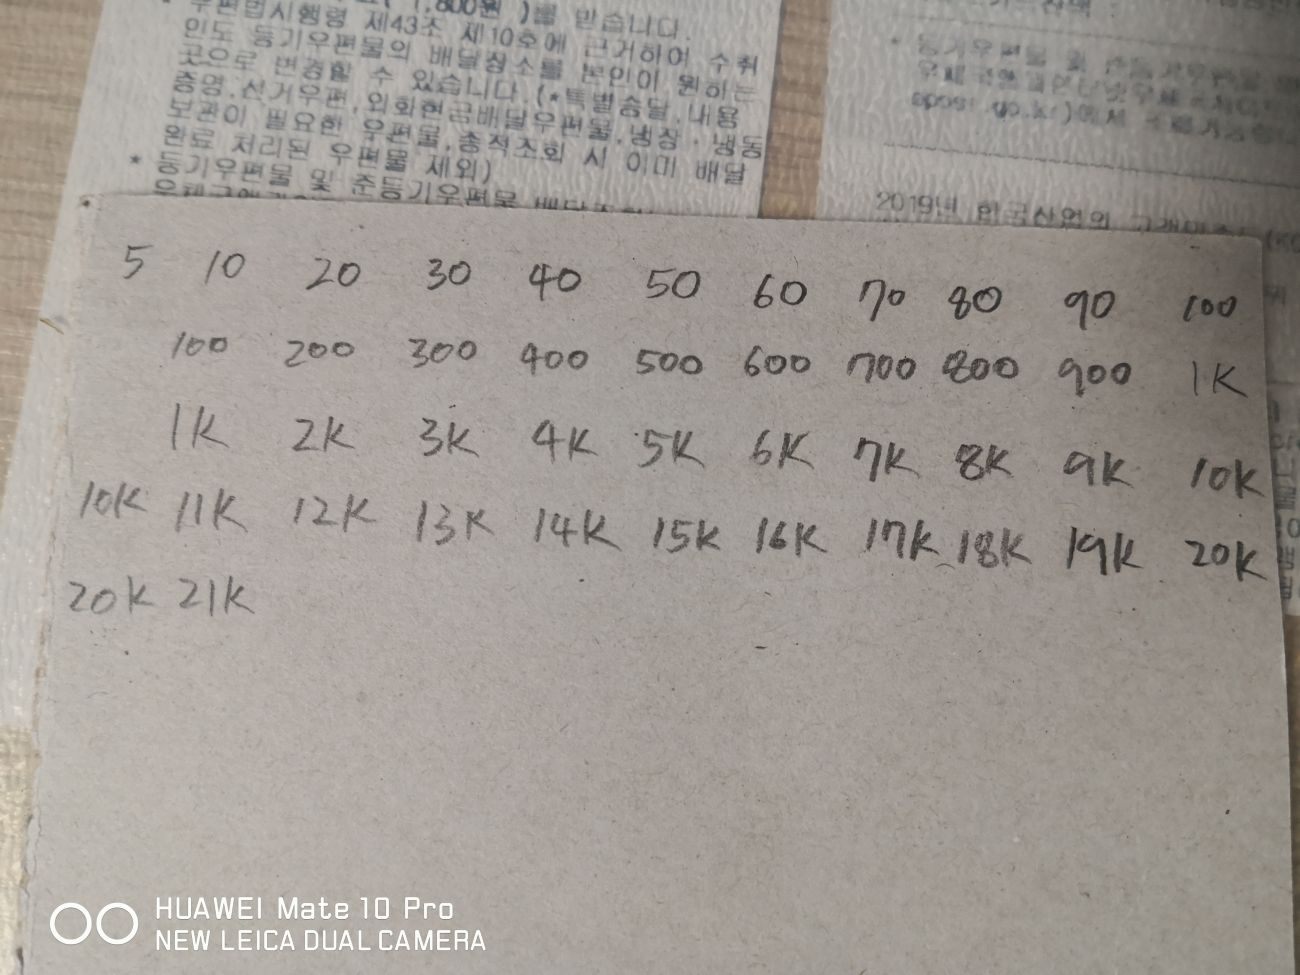 1,800원 )를 받습니다.
우편법시행령 제43조 제10호에 근거하여 수취
인도 등기우편물의 배달장소를 본인이 원하는
곳으로 변경할 수 있습니다.(*특별송달,내용
증명,선거우편,외화현금배달우편물,냉장·냉동
보관이 필요한 우편물,종적조회 시 이미 배달
완료 처리된 우편물 제외)
* 등기우편물 및 준등기우편물 배달조회는
* 등기우편물 및 준등기우편물
2019년 한국산업의 고객만족도(KC
5 10 20 30 40 50 60 70 80 90 100
100 200 300 400 500 600 700 800 900 1K
1K 2K 3K 4K 5K 6K 7K 8K 9K 10K
10K 11K 12K 13K 14K 15K 16K 17K 18K 19K 20K
20K 21K
HUAWEI Mate 10 Pro
NEW LEICA DUAL CAMERA